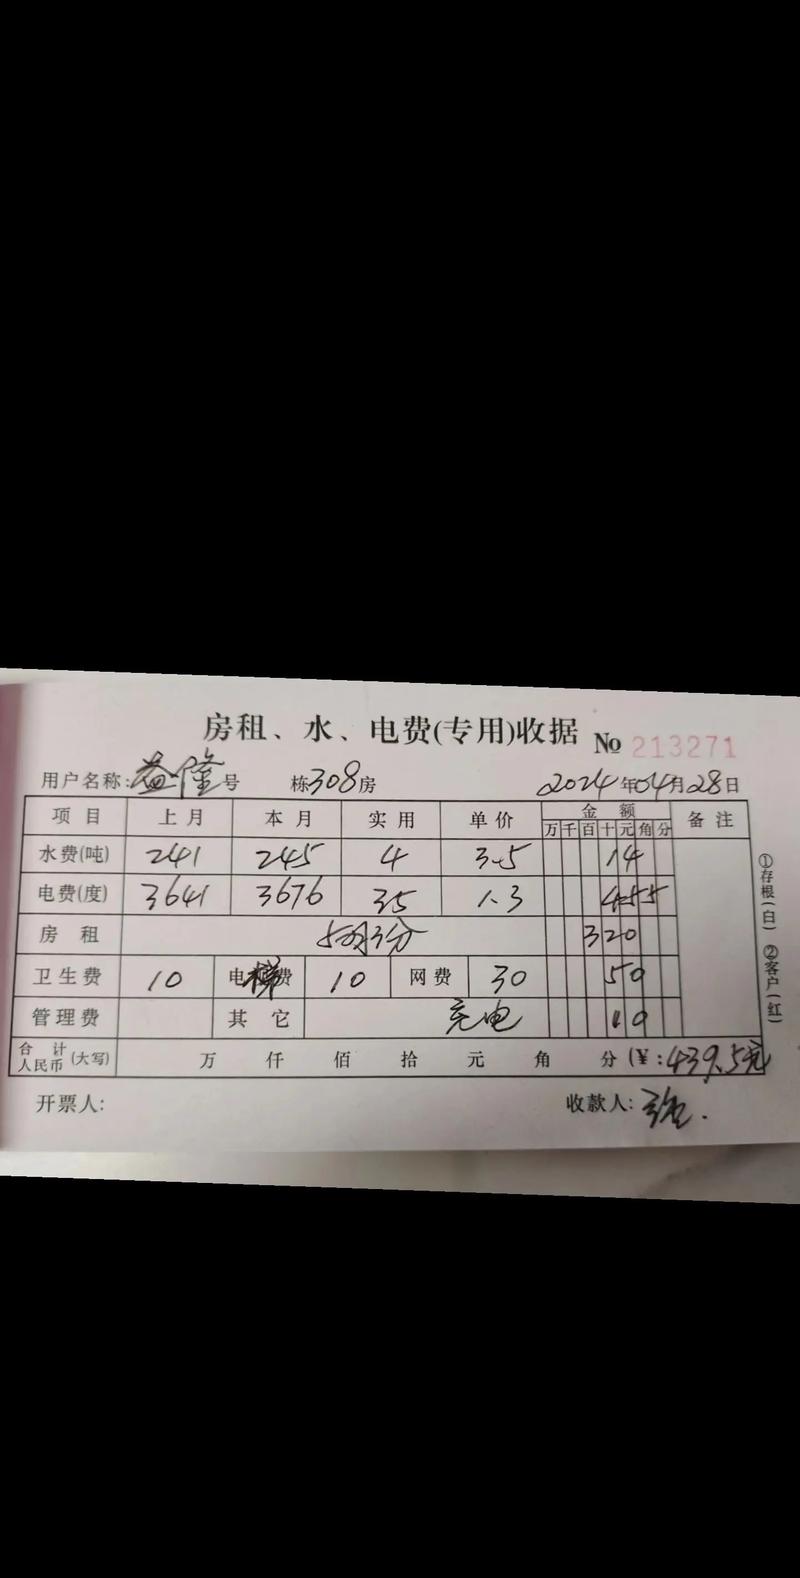 房租、水、电费(专用)收据 № 213271
用户名称:益隆号 栋308房 2024年04月28日
项目 上月 本月 实用 单价 金额 备注
万千百十元角分
水费(吨) 241 245 4 3.5 14
电费(度) 3641 3676 35 1.3 455
房租 5月份 320
卫生费 10 电梯费 10 网费 30 50
管理费 其它 充电 10
合计人民币(大写) 万 仟 佰 拾 元 角 分(¥:439.5元
开票人: 收款人:
①存根(白) ②客户(红)